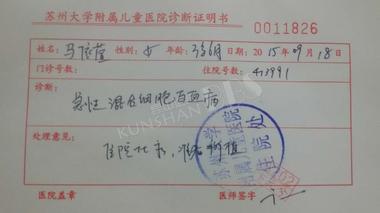 苏州大学附属儿童医院诊断证明书
0011826
姓名 马依萱 性别 女 年龄 3岁6月 日期:2015年09月18日
门诊号数: 住院号数: 413991
诊断:
急性混合细胞白血病
KUNSHAN
处理意见:
住院化疗,
医院盖章 医师签字